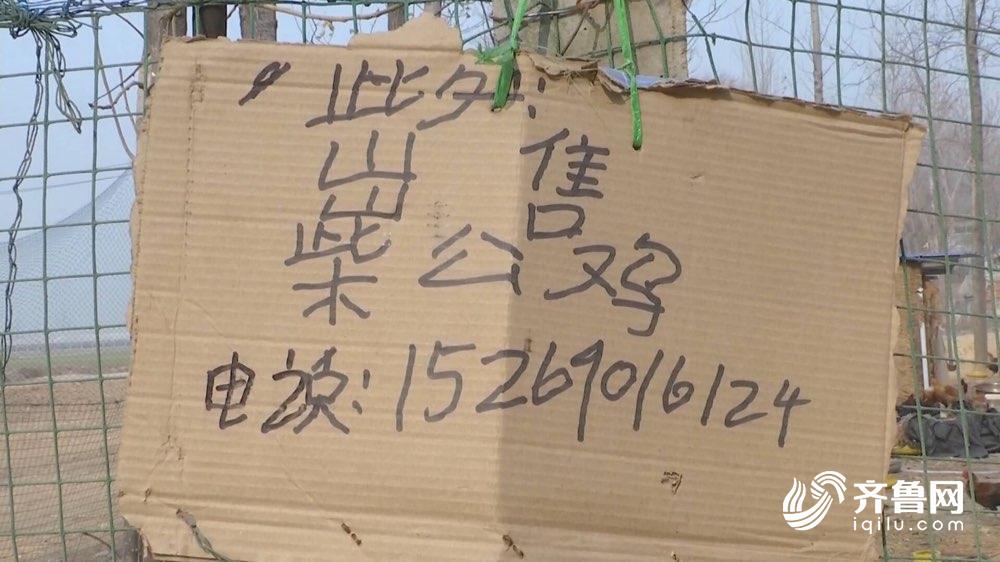 此处:
出售
柴公鸡
电话:15269016124
齐鲁网
iqilu.com